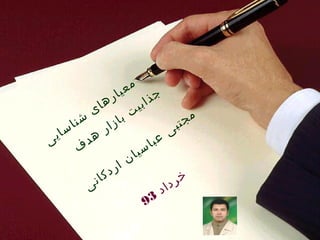 معیارهای شناسایی
جذابیت بازار هدف
مجتبی عباسیان اردکانی
خرداد 93